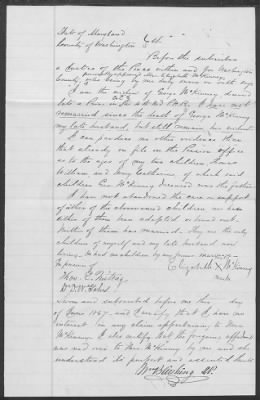 State of Maryland
County of Washington } ss.
Before the subscriber
a Justice of the Peace within and for Washington
personally appeared Mrs. Elizabeth McKinney
County, who being by me duly sworn
I am the widow of George McKinney deceased
late a Private in the P.H.B. I have not
remarried since the death of George McKinney
my late husband, but still remain his widow.
I can produce no other evidence than
that already on file in the Pension office
as to the ages of my two children
William and Mary Catharine of which said
children Geo. McKinney deceased was the father.
I have not abandoned the care or support
of either of the abovenamed children nor have
either of them been adopted or bound out.
Neither of them has married. They are the only
children of myself and my late husband now
living. I had no children by any former marriage.
In presence of Elizabeth X McKinney
mark
Sworn and subscribed before me this day
of June 1867. and I certify that I have no
interest in any claim appertaining to Mrs
McKinney. I also certify that the foregoing affidavit
was read over to Mrs McKinney by me and she
understood its purport and assented thereto
J.P.